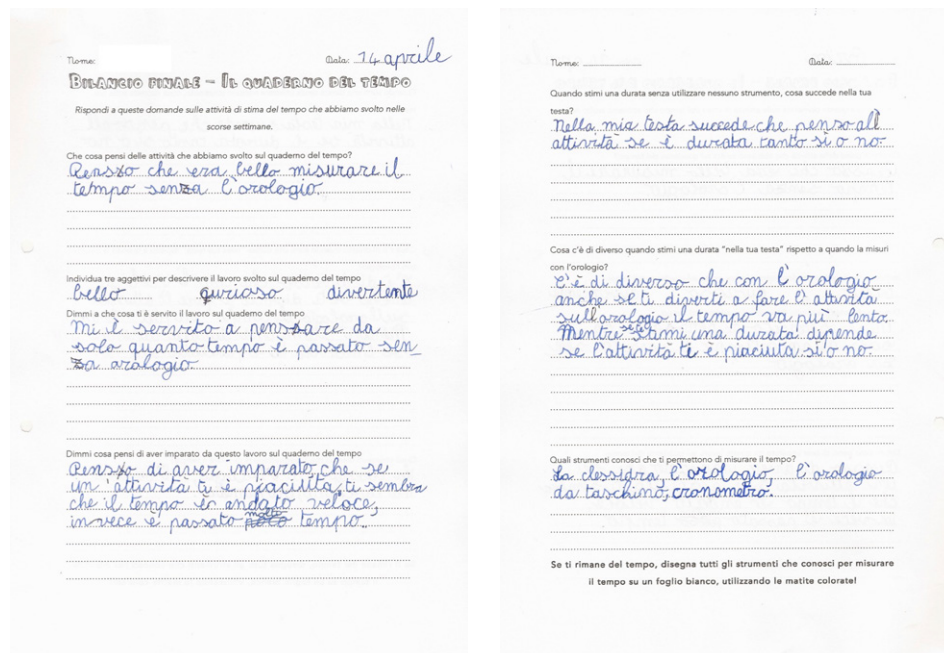 Nome:
Data: 14 aprile
BILANCIO FINALE – IL QUADERNO DEL TEMPO
Rispondi a queste domande sulle attività di stima del tempo che abbiamo svolto nelle
scorse settimane.
Che cosa pensi delle attività che abbiamo svolto sul quaderno del tempo?
Penso che era bello misurare il
tempo senza l'orologio.
Individua tre aggettivi per descrivere il lavoro svolto sul quaderno del tempo
bello qurioso divertente
Dimmi a che cosa ti è servito il lavoro sul quaderno del tempo
Mi è servito a pensare da
solo quanto tempo è passato sen_
za orologio.
Dimmi cosa pensi di aver imparato da questo lavoro sul quaderno del tempo
Penso di aver imparato che se
un'attività ti è piaciuita, ti sembra
che il tempo è andato veloce,
invece è passato molto tempo.
Nome:
Data:
Quando stimi una durata senza utilizzare nessuno strumento, cosa succede nella tua
testa?
Nella mia testa succede che penso all
attività se è durata tanto si o no.
Cosa c'è di diverso quando stimi una durata "nella tua testa" rispetto a quando la misuri
con l'orologio?
C'è di diverso che con l'orologio
anche se ti diverti a fare l'attività
sull'orologio il tempo va più lento.
Mentre se stimi una durata dipende
se l'attività te è piaciuta si o no.
Quali strumenti conosci che ti permettono di misurare il tempo?
La clessidra, l'orologio, l'orologio
da taschino, cronometro.
Se ti rimane del tempo, disegna tutti gli strumenti che conosci per misurare
il tempo su un foglio bianco, utilizzando le matite colorate!